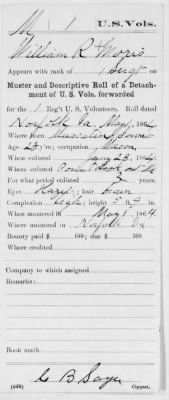 M 1 U.S. Vols.
William R Moris
Appears with rank of 1 Sergt on
Muster and Descriptive Roll of a Detach-
ment of U. S. Vols. forwarded
for the 1 Reg't U.S. Volunteers. Roll dated
Norfolk Va, May 1, 1864.
Where born Muscatine Iowa
Age 23 y'rs; occupation Mason
When enlisted Jany 23, 1864.
Where enlisted Point Look out Md
For what period enlisted 3 years.
Eyes Hazel; hair brown
Complexion Light; height 5 ft. in.
When mustered in May 1, 1864.
Where mustered in Norfolk Va
Bounty paid $ 100; due $ 100
Where credited
Company to which assigned
Remarks:
Book mark:
C B Sayer
(639) Copyist.